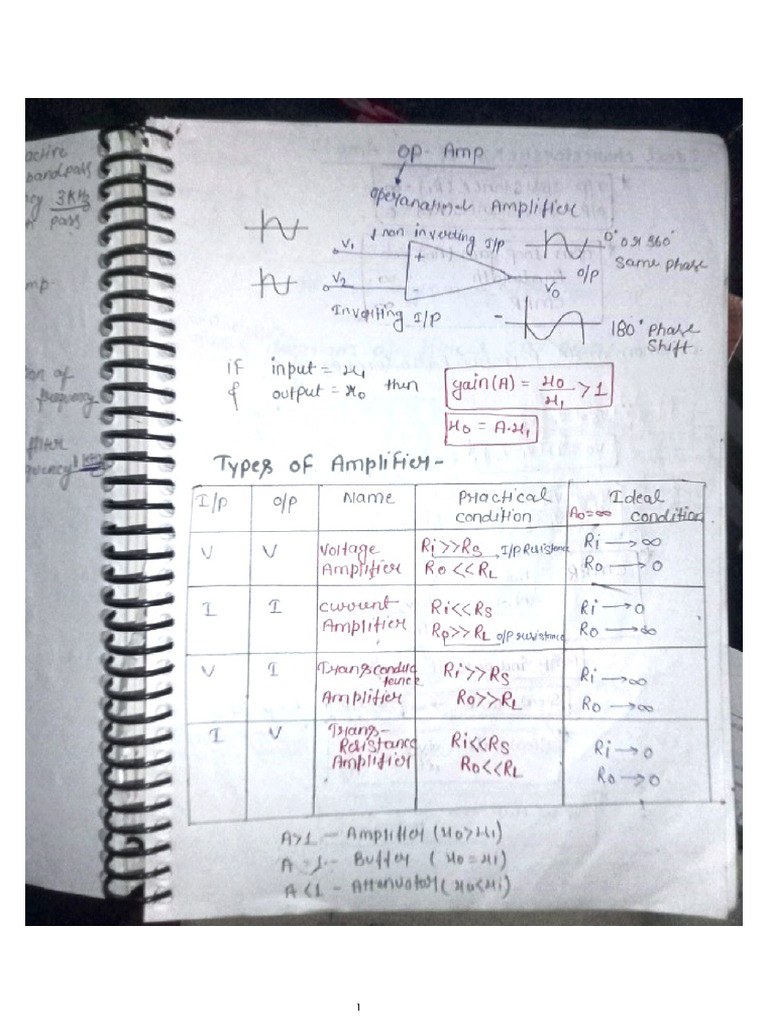 active
bandpass
3KHz
pass
mp-
ion of
frequency
filter
quency
OP-Amp
operanational Amplifier
V1
non inverting I/p
+
0° or 360°
same phase
V2
-
Vo
O/P
Inverting I/P
-
180° Phase
Shift.
if input = x1
& output = xo then
gain(A) = xo/x1 > 1
xo = A·x1
Types of Amplifier-
I/p O/p Name Practical condition Ideal condition Ao=∞
V V Voltage Amplifier Ri>>Rs I/P Resistance Ri → ∞
Ro<<RL Ro → 0
I I Current Amplifier Ri<<Rs Ri → 0
Ro>>RL O/P resistance Ro → ∞
V I Transconductance Amplifier Ri>>Rs Ri → ∞
Ro>>RL Ro → ∞
I V Trans-Resistance Amplifier Ri<<Rs Ri → 0
Ro<<RL Ro → 0
A>1 - Amplifier (xo>xi)
A=1 - Buffer (xo=xi)
A<1 - Attenuator (xo<xi)
1